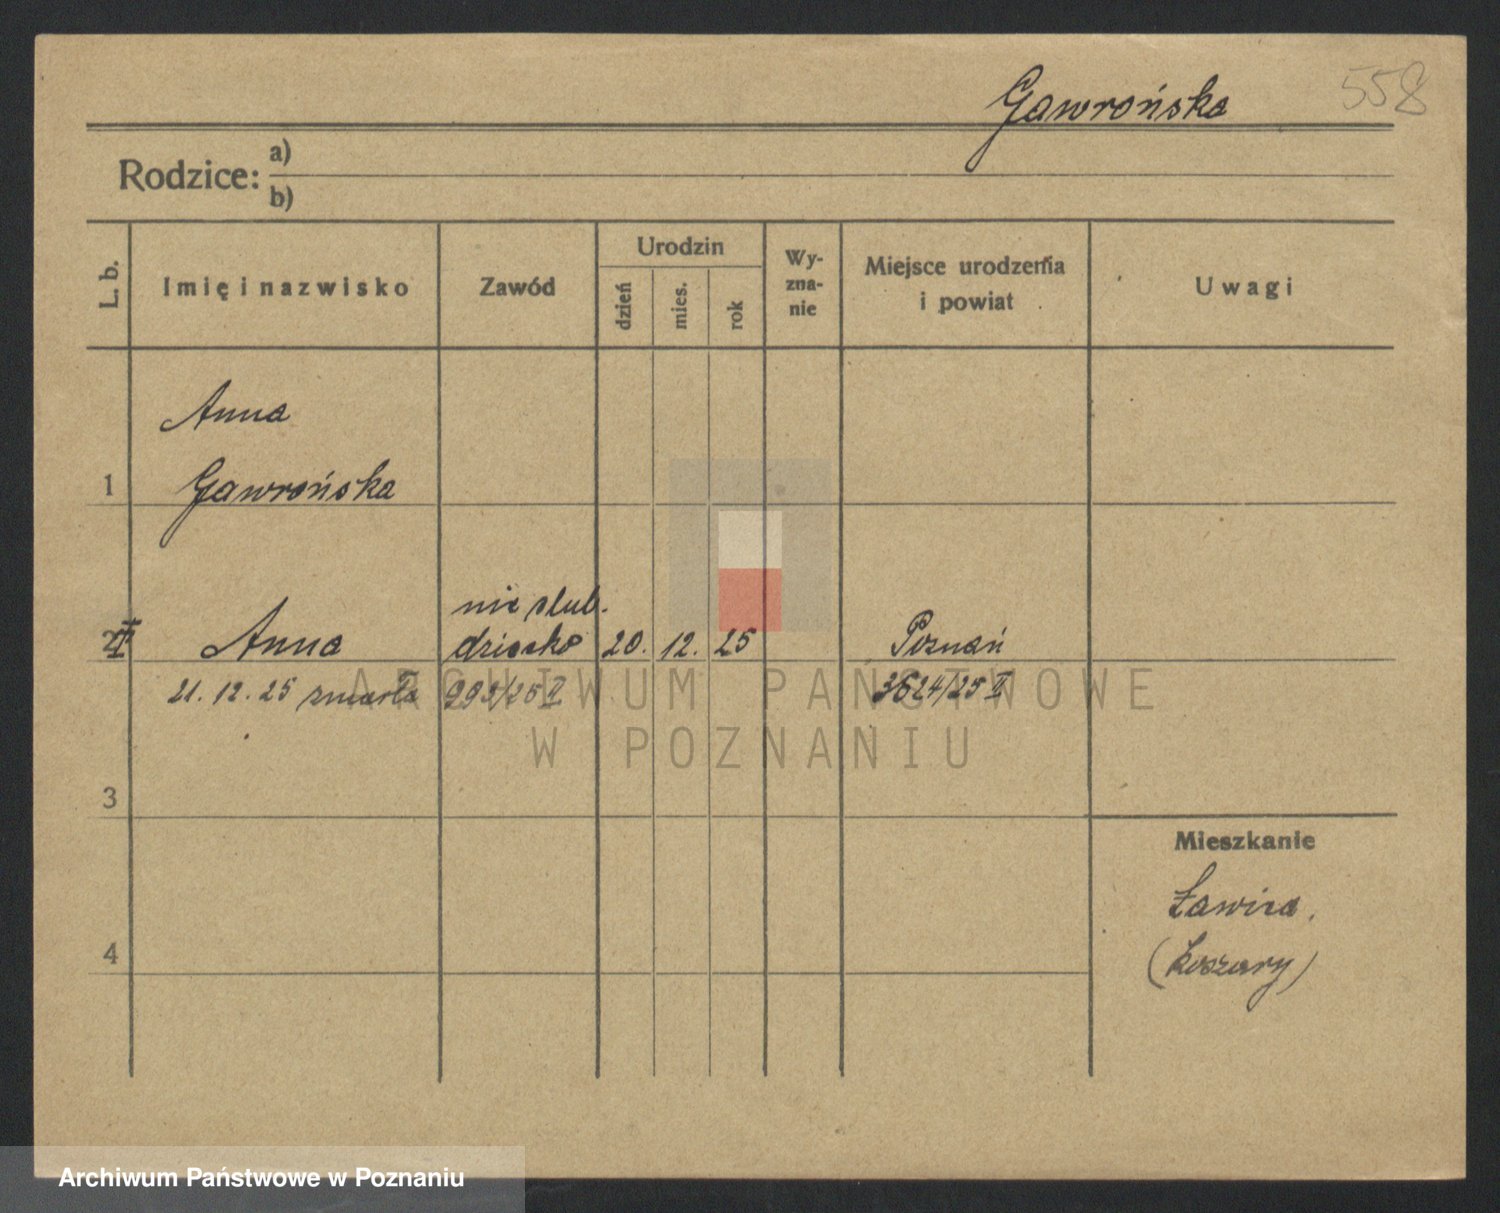 558
Gawrońska
Rodzice: a)
b)
L. b.
Imię i nazwisko
Zawód
Urodzin
dzień
mies.
rok
Wy-
zna-
nie
Miejsce urodzenia
i powiat
Uwagi
Anna
1 Gawrońska
nieslub.
2 I Anna dziecko 20. 12. 25 Poznań
21. 12. 25 zmarła 993/25 II 3624/25 II
3
Mieszkanie
Ławica,
(koszary)
4
ARCHIWUM PAŃSTWOWE
W POZNANIU
Archiwum Państwowe w Poznaniu